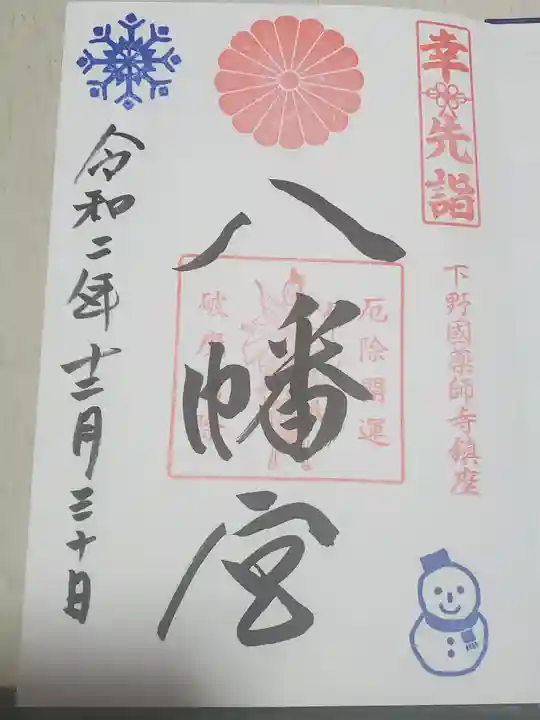 幸先詣
下野國薬師寺鎮座
厄除開運
八幡宮
破魔
令和二年十二月三十日